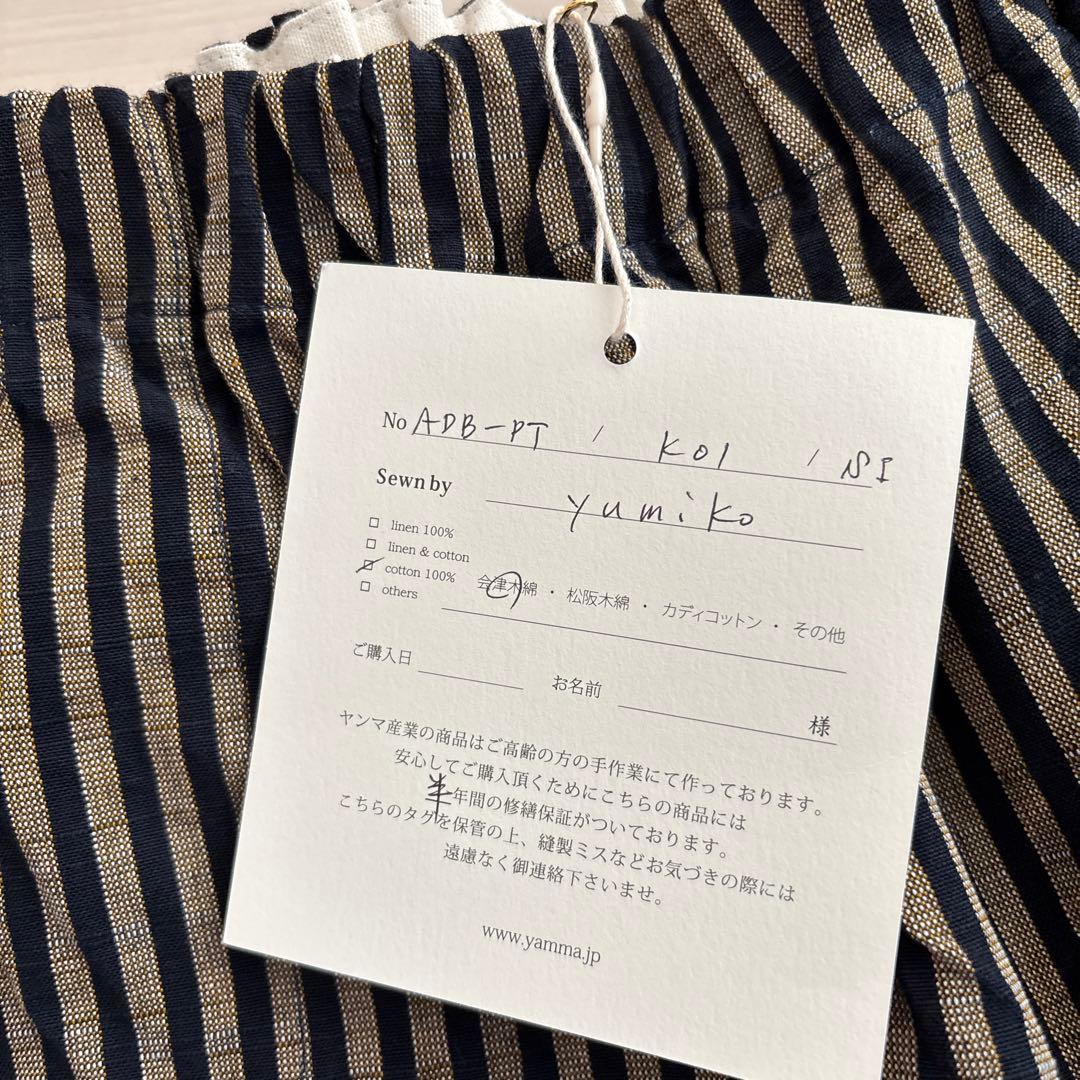 No ADB-PT / K01 / SI
Sewn by yumiko
linen 100%
linen & cotton
cotton 100% 会津木綿 ・ 松阪木綿 ・ カディコットン ・ その他
others
ご購入日 お名前 様
ヤンマ産業の商品はご高齢の方の手作業にて作っております。
安心してご購入頂くためにこちらの商品には
半年間の修繕保証がついております。
こちらのタグを保管の上、縫製ミスなどお気づきの際には
遠慮なく御連絡下さいませ。
www.yamma.jp